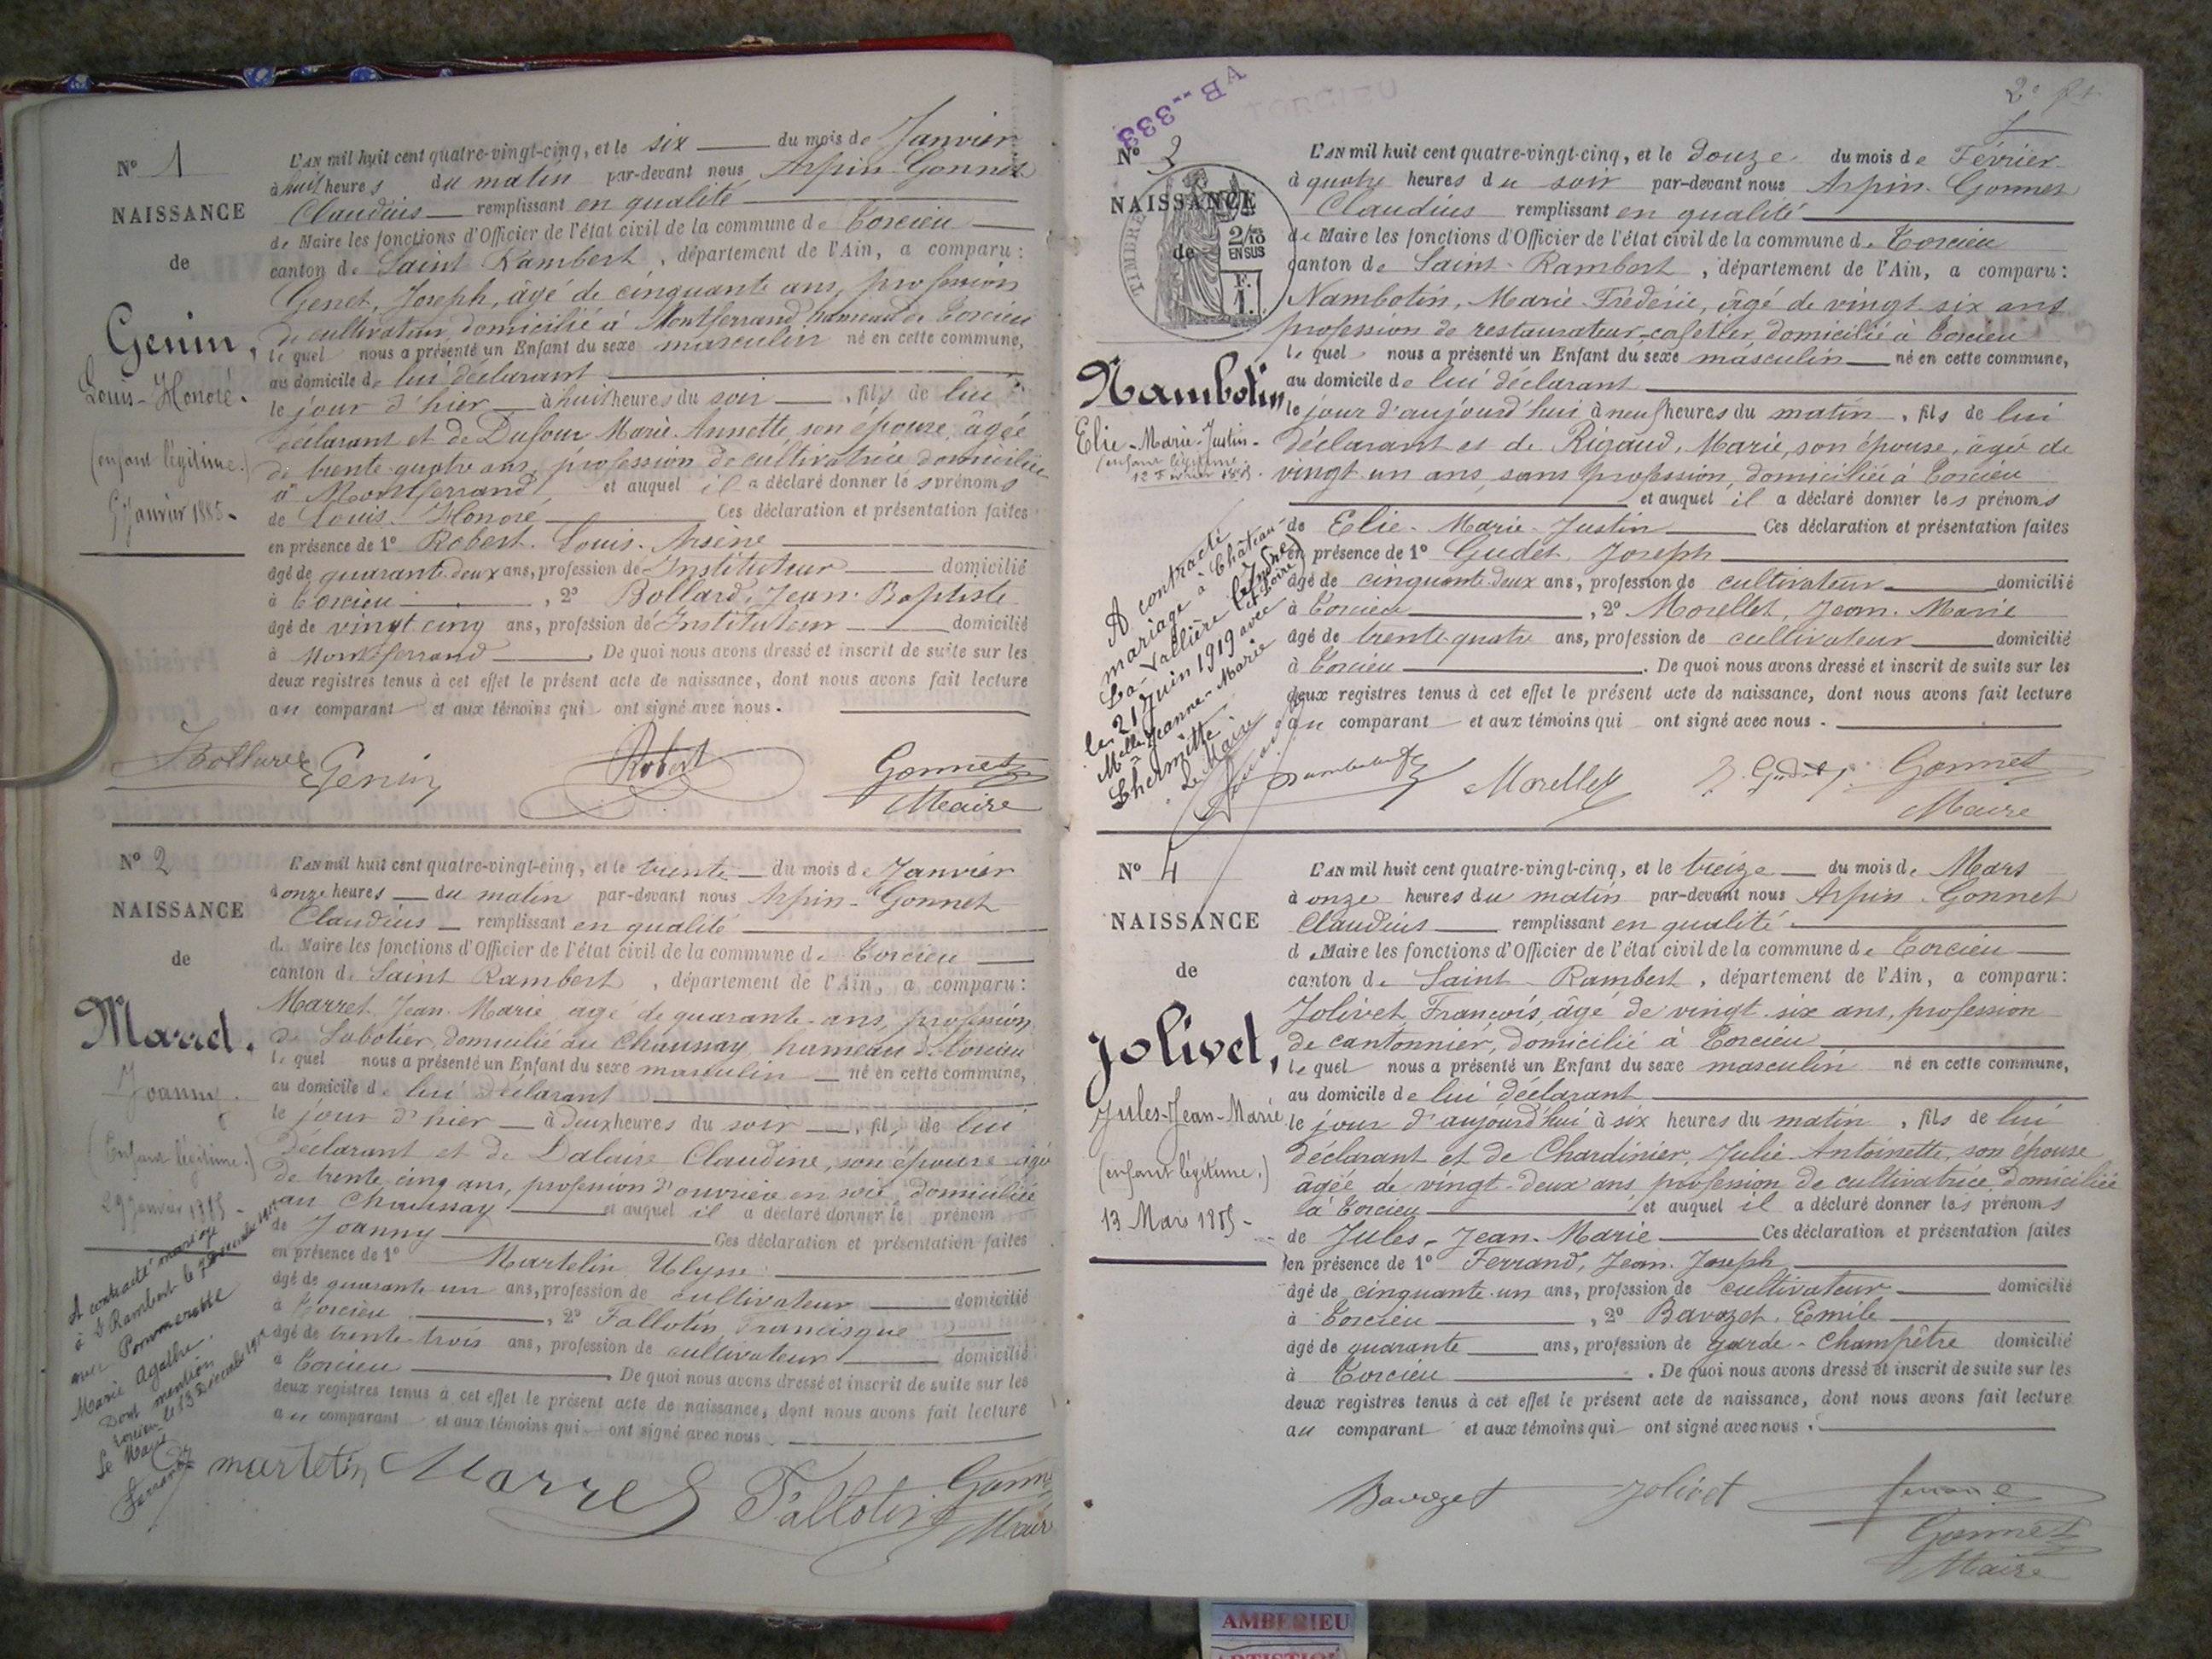 N° 1
NAISSANCE
de
Genin,
Louis-Honoré.
(enfant légitime.)
5 Janvier 1885.
L'AN mil huit cent quatre-vingt-cinq, et le six du mois de Janvier
à huit heures du matin par-devant nous Arpin-Gonnet
Claudius remplissant en qualité
de Maire les fonctions d'Officier de l'état civil de la commune de Torcieu
canton de Saint Rambert, département de l'Ain, a comparu:
Genet, Joseph, âgé de cinquante ans, profession
de cultivateur, domicilié à Montferrand hameau de Torcieu
le quel nous a présenté un Enfant du sexe masculin né en cette commune,
au domicile de lui déclarant
le jour d'hier à huit heures du soir, fils de lui
déclarant et de Dufour Marie Annette, son épouse, âgée
de trente quatre ans, profession de cultivatrice domiciliée
à Montferrand, et auquel il a déclaré donner les prénoms
de Louis-Honoré Ces déclaration et présentation faites
en présence de 1° Robert. Louis. Arsène
âgé de quarante deux ans, profession de Instituteur domicilié
à Torcieu, 2° Bollard, Jean-Baptiste
âgé de vingt cinq ans, profession de Instituteur domicilié
à Montferrand. De quoi nous avons dressé et inscrit de suite sur les
deux registres tenus à cet effet le présent acte de naissance, dont nous avons fait lecture
au comparant et aux témoins qui ont signé avec nous.
Genin Robert Gonnet
Maire
N° 2
NAISSANCE
de
Marret.
Joanny.
(Enfant légitime.)
29 Janvier 1885
A contracté mariage
à St Rambert le 7 décembre
avec Pommerable
Marie Agathe.
Dont mention
Torcieu le 13 Décembre
Le Maire
Ferrand
L'AN mil huit cent quatre-vingt-cinq, et le trente du mois de Janvier
à onze heures du matin par-devant nous Arpin-Gonnet
Claudius remplissant en qualité
de Maire les fonctions d'Officier de l'état civil de la commune de Torcieu
canton de Saint Rambert, département de l'Ain, a comparu:
Marret, Jean Marie, âgé de quarante ans, profession
de Sabotier, domicilié au Chaussay, hameau de Torcieu
le quel nous a présenté un Enfant du sexe masculin né en cette commune,
au domicile de lui déclarant
le jour d'hier à deux heures du soir, fils de lui
déclarant et de Dalaise Claudine, son épouse âgée
de trente cinq ans, profession d'ouvrière en soie, domiciliée
au Chaussay et auquel il a déclaré donner le prénom
de Joanny Ces déclaration et présentation faites
en présence de 1° Martelin Ulysse
âgé de quarante un ans, profession de cultivateur domicilié
à Torcieu, 2° Fallotin, Francisque
âgé de trente-trois ans, profession de cultivateur domicilié
à Torcieu. De quoi nous avons dressé et inscrit de suite sur les
deux registres tenus à cet effet le présent acte de naissance, dont nous avons fait lecture
au comparant et aux témoins qui ont signé avec nous.
martelin Marret Fallotin Gonnet
Maire
VB--333
2e
N° 3
NAISSANCE
de
TIMBRE
2/10
EN SUS
F.
1.
Nambotin
Elie-Marie-Justin-
(enfant légitime)
12 Février 1885.
A contracté
mariage à Château-
La-Vallière (Indre
et Loire)
le 21 Juin 1919 avec
Melle Jeanne-Marie
Lhermitte
Le Maire
L'AN mil huit cent quatre-vingt-cinq, et le douze du mois de Février
à quatre heures du soir par-devant nous Arpin-Gonnet
Claudius remplissant en qualité
de Maire les fonctions d'Officier de l'état civil de la commune de Torcieu
canton de Saint-Rambert, département de l'Ain, a comparu:
Nambotin, Marie-Frédéric, âgé de vingt six ans
profession de restaurateur-cafetier, domicilié à Torcieu
le quel nous a présenté un Enfant du sexe masculin né en cette commune,
au domicile de lui déclarant
le jour d'aujourd'hui à neuf heures du matin, fils de lui
déclarant et de Rigaud, Marie, son épouse, âgée de
vingt un ans, sans profession, domiciliée à Torcieu
et auquel il a déclaré donner les prénoms
de Elie-Marie-Justin Ces déclaration et présentation faites
en présence de 1° Gudet, Joseph
âgé de cinquante deux ans, profession de cultivateur domicilié
à Torcieu, 2° Morellet, Jean-Marie
âgé de trente-quatre ans, profession de cultivateur domicilié
à Torcieu. De quoi nous avons dressé et inscrit de suite sur les
deux registres tenus à cet effet le présent acte de naissance, dont nous avons fait lecture
au comparant et aux témoins qui ont signé avec nous.
Morellet J. Gudet Gonnet
Maire
N° 4
NAISSANCE
de
Jolivet,
Jules-Jean-Marie
(enfant légitime.)
13 Mars 1885-
L'AN mil huit cent quatre-vingt-cinq, et le treize du mois de Mars
à onze heures du matin par-devant nous Arpin-Gonnet
Claudius remplissant en qualité
de Maire les fonctions d'Officier de l'état civil de la commune de Torcieu
canton de Saint-Rambert, département de l'Ain, a comparu:
Jolivet, François, âgé de vingt-six ans, profession
de cantonnier, domicilié à Torcieu
le quel nous a présenté un Enfant du sexe masculin né en cette commune,
au domicile de lui déclarant
le jour d'aujourd'hui à six heures du matin, fils de lui
déclarant et de Chardinier, Julie Antoinette, son épouse
âgée de vingt-deux ans profession de cultivatrice, domiciliée
à Torcieu et auquel il a déclaré donner les prénoms
de Jules-Jean-Marie Ces déclaration et présentation faites
en présence de 1° Ferrand, Jean-Joseph
âgé de cinquante-un ans, profession de cultivateur domicilié
à Torcieu, 2° Bavozet. Emile
âgé de quarante ans, profession de garde-champêtre domicilié
à Torcieu. De quoi nous avons dressé et inscrit de suite sur les
deux registres tenus à cet effet le présent acte de naissance, dont nous avons fait lecture
au comparant et aux témoins qui ont signé avec nous.
Bavozet Jolivet Ferrand
Gonnet
Maire
AMBERIEU